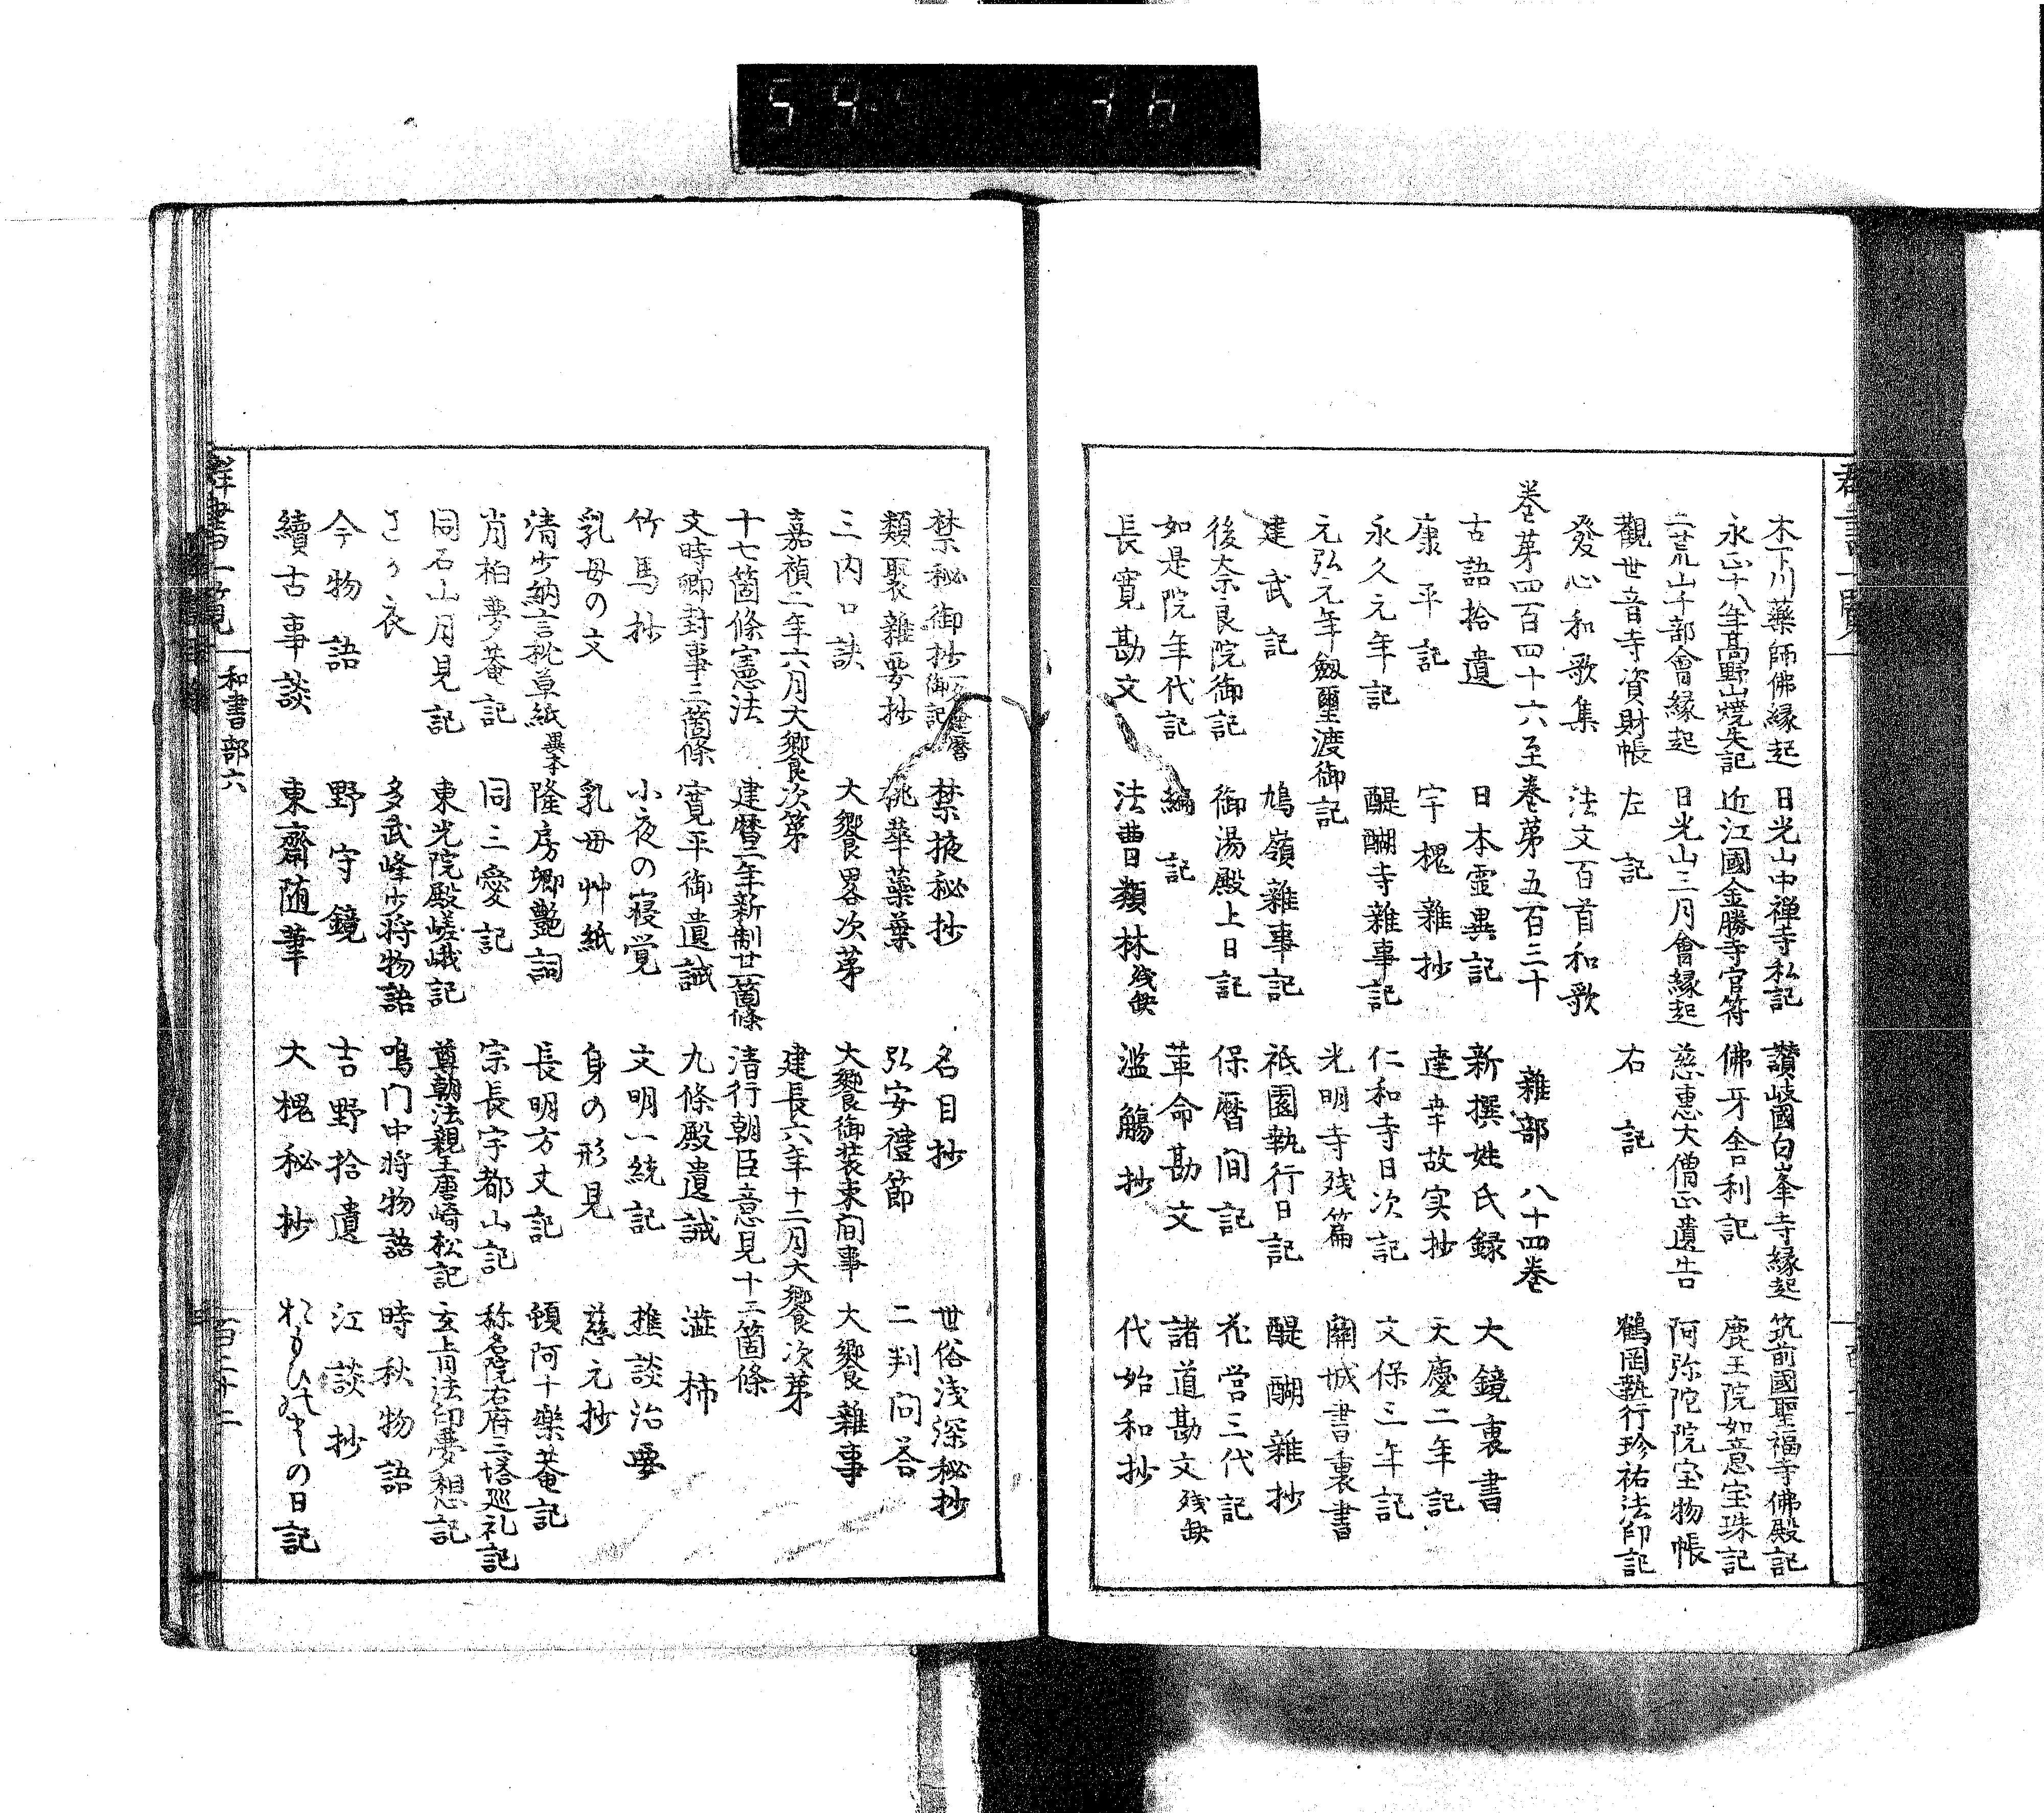 木下川藥師佛縁起　日光山中禅寺私記　讃岐國白峯寺縁起　筑前國聖福寺佛殿記
永正十八年髙野山焼失記　近江國金勝寺官符　佛牙舎利記　鹿王院如意宝珠記
二荒山千部會縁起　日光山三月會縁起　慈惠大僧正遺告　阿弥陀院宝物帳
觀世音寺資財帳　左記　右記　鶴岡執行珍祐法印記
發心和歌集　法文百首和歌
巻苐四百四十六至巻苐五百三十　雜部　八十四巻
古語拾遺　日本霊異記　新撰姓氏録　大鏡裏書
康平記　宇槐雜抄　達幸故実抄　天慶二年記
永久元年記　醍醐寺雜事記　仁和寺日次記　文保三年記
元弘元年劔璽渡御記　光明寺残篇　關城書裏書
建武記　鳩嶺雜事記　祇園執行日記　醍醐雜抄
後奈良院御記　御湯殿上日記　保暦间記　花営三代記
如是院年代記　編記　革命勘文　諸道勘文残缺
長寛勘文　法曹類林残缺　濫觴抄　代始和抄
禁秘御抄一名建暦御記　禁掖秘抄　名目抄　世俗浅深秘抄
類聚雜要抄　桃華蘂葉　弘安禮節　二判问答
三内口訣　大饗畧次苐　大饗御装束间事　大饗雜事
嘉禎二年六月大饗次第　建長六年十二月大饗次苐
十七箇條憲法　建暦二年新制廿一箇條　清行朝臣意見十二箇條
文時卿封事三箇條　寛平御遺誡　九條殿遺誡　澁柿
竹馬抄　小夜の寝覚　文明一統記　樵談治要
乳母の文　乳母艸紙　身の形見　慈元抄
清少納言枕草紙異本　隆房卿艶詞　長明方丈記　頓阿十樂菴記
肖柏夢菴記　同三愛記　宗長宇都山記　称名院右府二塔巡礼記
同石山月見記　東光院殿嵯峨記　尊朝法親王唐崎松記　玄与法印夢想記
さゝ衣　多武峰少将物語　鳴门中将物語　時秋物語
今物語　野守鏡　吉野拾遺　江談抄
續古事談　東齋随筆　大槐秘抄　の日記
群書一覽　和書部六